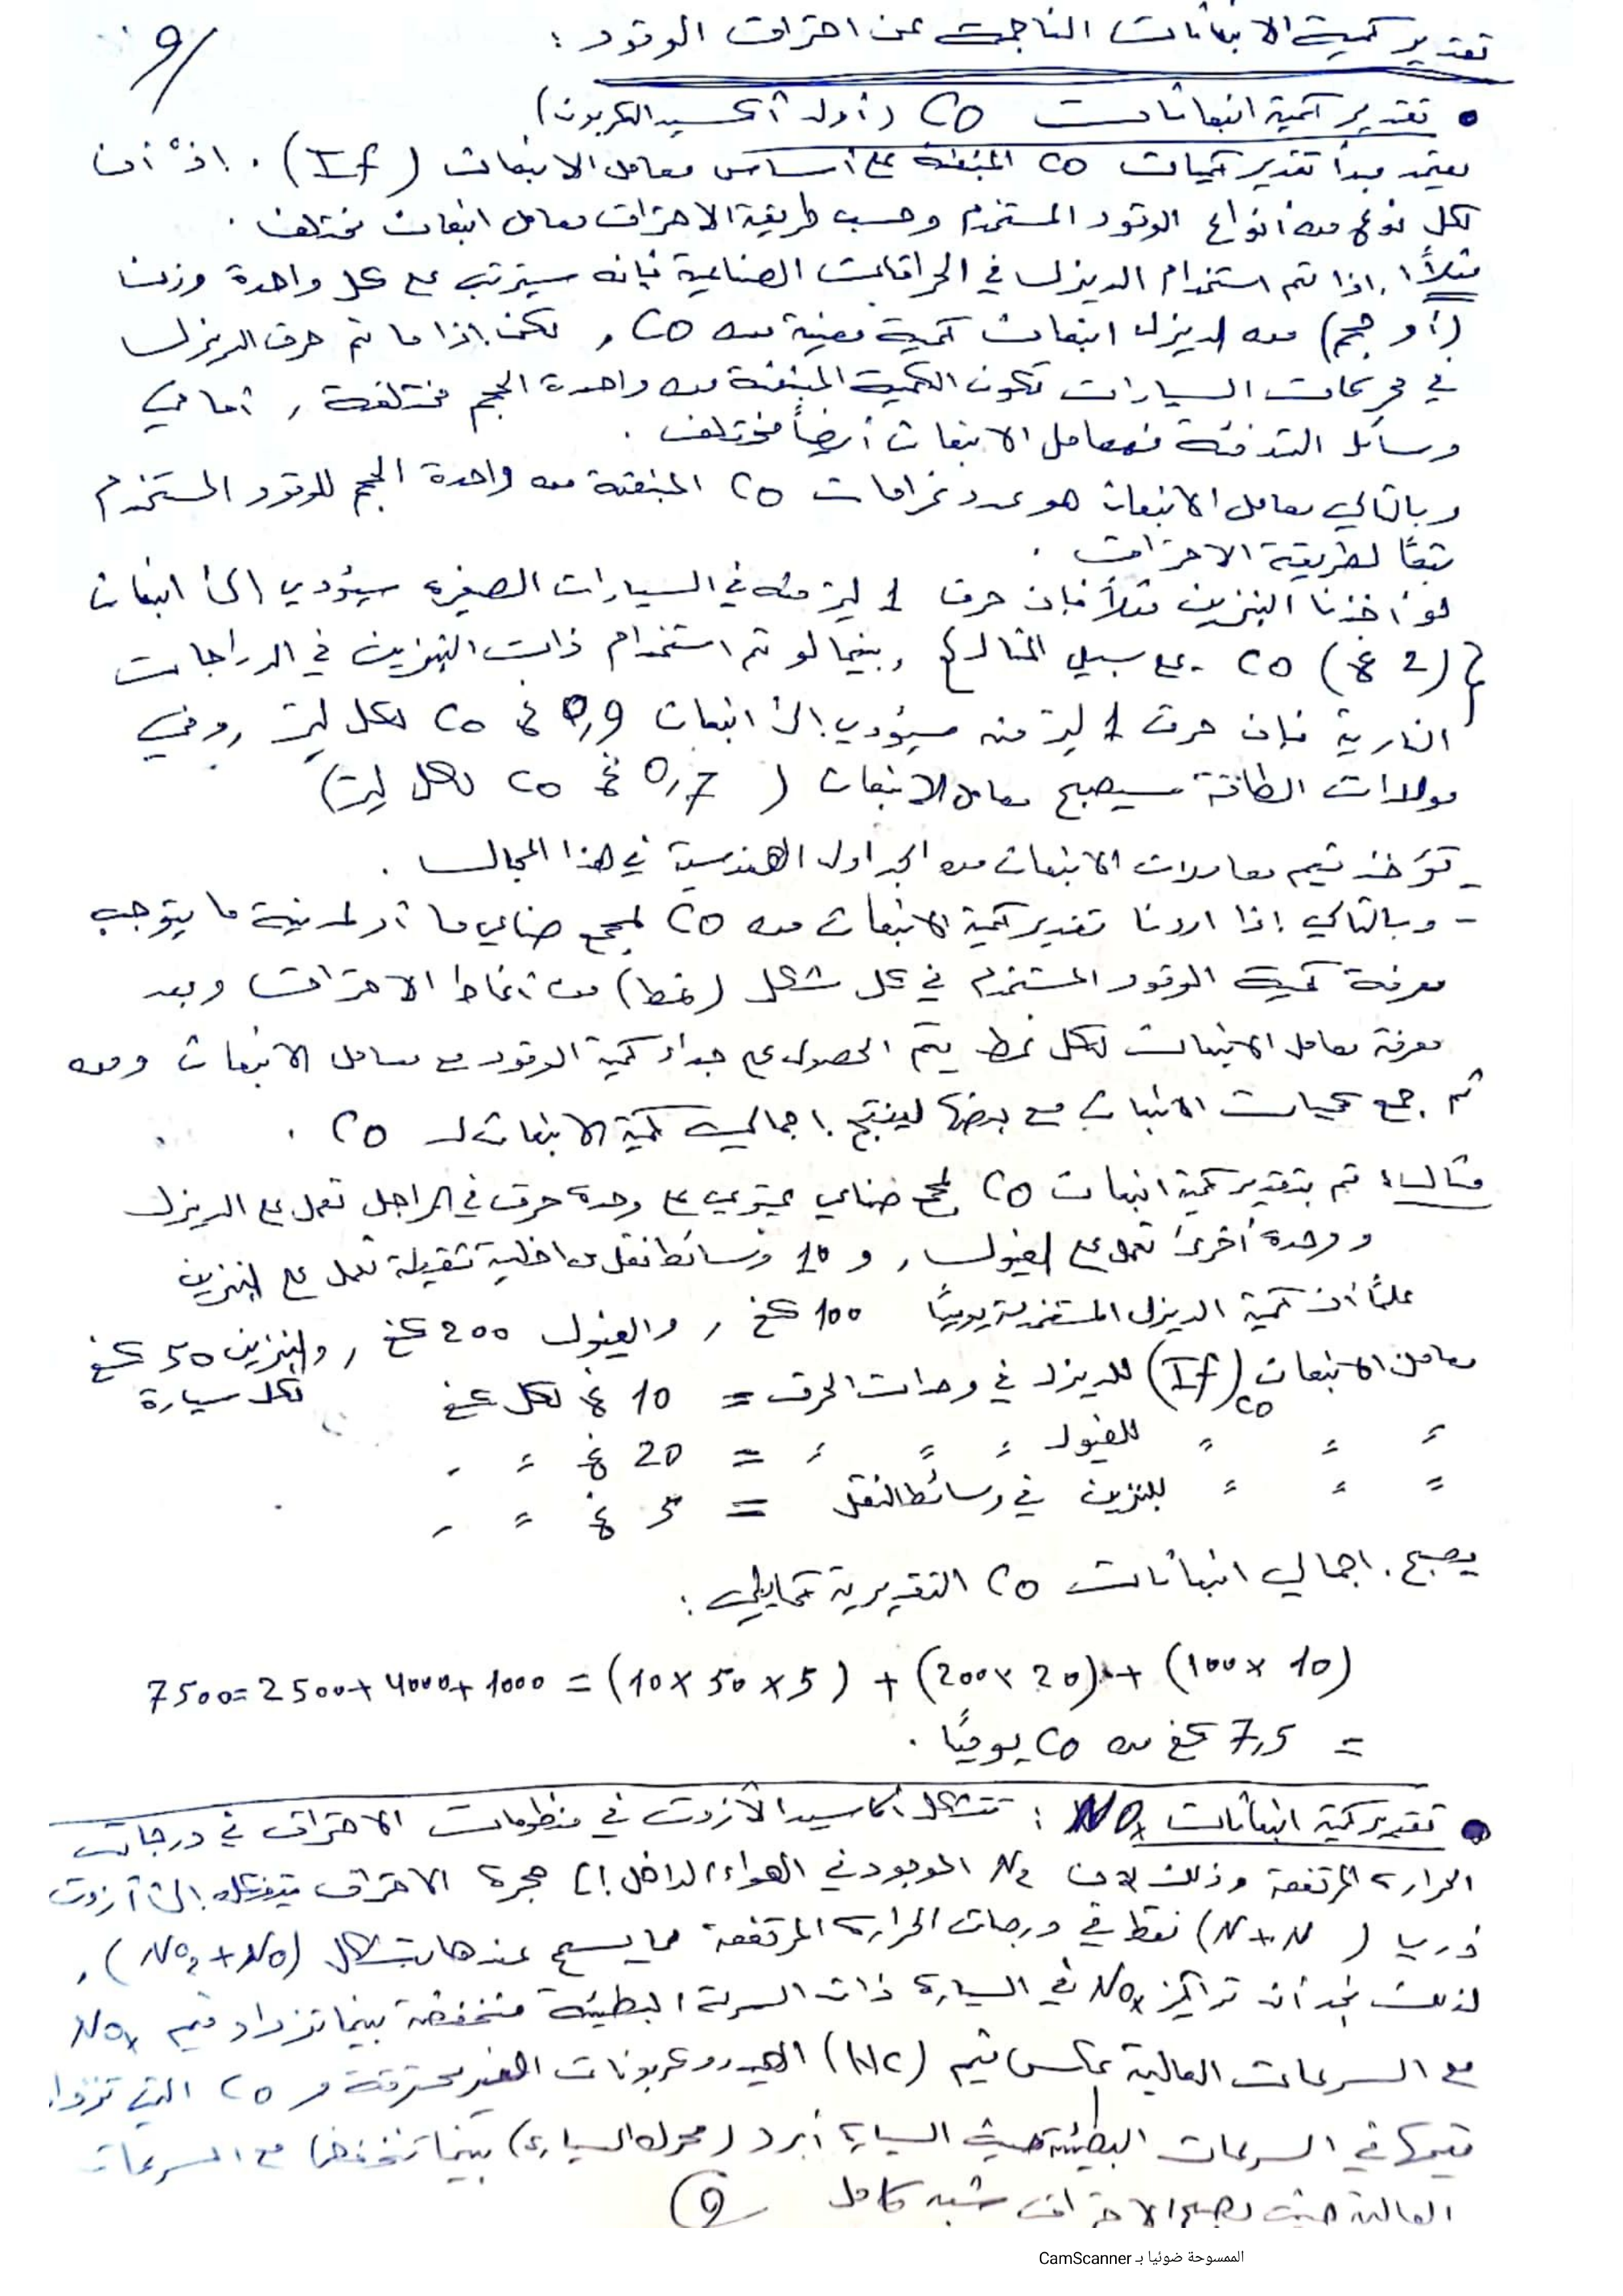 9/
تقدير كمية الانبعاثات الناجمة عن احتراق الوقود :
• تقدير كمية انبعاثات CO (أول أكسيد الكربون)
يعتمد مبدأ تقدير كميات CO المنبعثة على أساس معامل الانبعاث (If) . إذ أن
لكل نوع من أنواع الوقود المستخدم وحسب طريقة الاحتراق معامل انبعاث مختلف .
مثلاً : إذا تم استخدام الديزل في الحراقات الصناعية فإنه سيترتب مع كل واحدة وزن
(أو حجم) من الديزل انبعاث كمية معينة من CO , لكن إذا ما تم حرق الديزل
في محركات السيارات تكون الكمية المنبعثة من واحدة الحجم مختلفة , أما في
وسائل التدفئة فمعامل الانبعاث أيضاً مختلف .
وبالتالي معامل الانبعاث هو عدد غرامات CO المنبعثة من واحدة الحجم للوقود المستخدم
تبعًا لطريقة الاحتراق .
لو أخذنا البنزين مثلاً فإن حرق 1 ليتر منه في السيارات الصغيرة سيؤدي إلى انبعاث
{(2 غ) CO - على سبيل المثال} , بينما لو تم استخدام ذات البنزين في الدراجات
النارية فإن حرق 1 ليتر منه سيؤدي إلى انبعاث 0,9 غ CO لكل ليتر , وفي
مولدات الطاقة سيصبح معامل الانبعاث ( 0,7 غ CO لكل ليتر)
- تؤخذ قيم معاملات الانبعاث من الجداول الهندسية في هذا المجال .
- وبالتالي إذا اردنا تقدير كمية الانبعاث من CO لمجمع صناعي ما أو لمدينة ما يتوجب
معرفة كمية الوقود المستخدم في كل شكل (نمط) من أنماط الاحتراق وبعد
معرفة معامل الانبعاث لكل نمط يتم الحصول على جداء كمية الوقود مع معامل الانبعاث ومن
ثم جمع كميات الانبعاث مع بعضها لينتج إجمالي كمية الانبعاث لـ CO .
مثال : تم تقدير كمية انبعاث CO لمجمع صناعي يحتوي على وحدة حرق في المراجل تعمل على الديزل
و وحدة أخرى تعمل على الفيول , و 10 وسائط نقل داخلية ثقيلة تعمل على البنزين
علمًا أن كمية الديزل المستخدمة يوميًا 100 كغ , والفيول 200 كغ , والبنزين 50 كغ
لكل سيارة
معامل الانبعاث (If)CO للديزل في وحدات الحرق = 10 غ لكل كغ
" " " للفيول " " " = 20 غ " "
" " " للبنزين في وسائط النقل = 5 غ " "
يصبح إجمالي انبعاثات CO التقديرية كمايلي :
7500 = 2500 + 4000 + 1000 = (10 × 50 × 5) + (200 × 20) + (100 × 10)
= 7,5 كغ من CO يوميًا .
• تقدير كمية انبعاثات NOx : تتشكل أكاسيد الأزوت في منظومات الاحتراق في درجات
الحرارة المرتفعة وذلك لأن N2 الموجود في الهواء الداخل إلى حجرة الاحتراق يتفكك إلى آزوت
ذري (N+N) فقط في درجات الحرارة المرتفعة مما يسمح عندها بتشكل (NO2 + NO) ,
لذلك نجد أن تراكيز NOx في السيارة ذات السرعة البطيئة منخفضة بينما تزداد قيم NOx
مع السرعات العالية عكس قيم (HC) الهيدروكربونات الغير محترقة و CO التي تزداد
قيمها في السرعات البطيئة حيث السيارة أبرد (محرك السيارة) بينما تنخفض مع السرعات
العالية حيث يصبح الاحتراق شبه كامل
9
الممسوحة ضوئيا بـ CamScanner